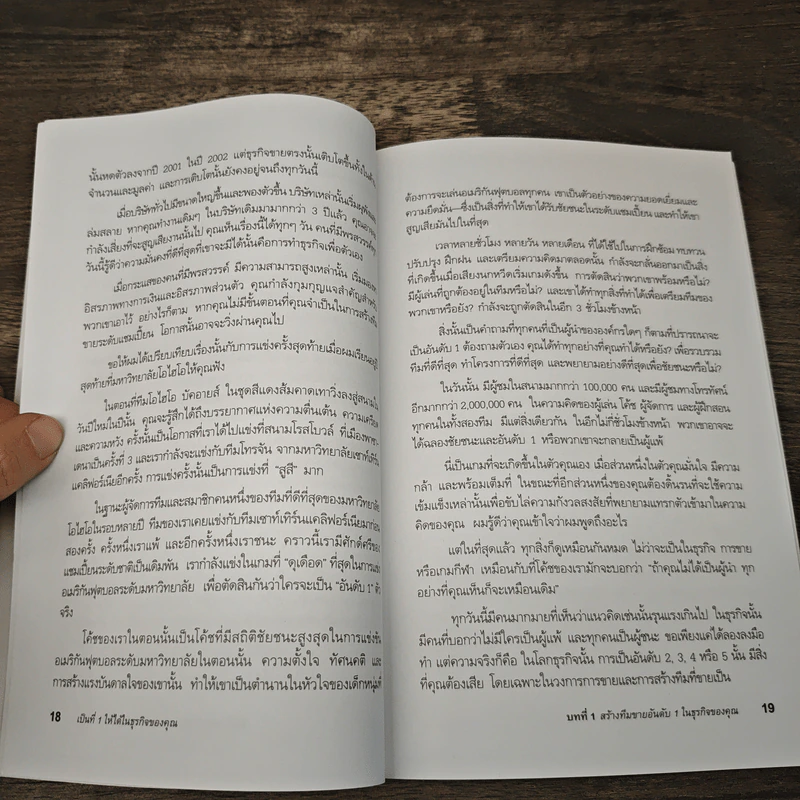 นั้นหดตัวลงจากปี 2001 ในปี 2002 แต่ธุรกิจขายตรงนั้นเติบโตขึ้นทั้งในด้าน
จำนวนและมูลค่า และการเติบโตนั้นยังคงอยู่จนถึงทุกวันนี้
เมื่อบริษัททั่วไปมีขนาดใหญ่ขึ้นและพองตัวขึ้น บริษัทเหล่านั้นเริ่มผุพังและ
ล่มสลาย หากคุณทำงานเดิมๆ ในบริษัทเดิมมามากกว่า 3 ปีแล้ว คุณอาจจะ
กำลังเสี่ยงที่จะสูญเสียงานนั้นไป คุณเห็นเรื่องนี้ได้ทุกๆ วัน คนที่มีพรสวรรค์ทุก
วันนี้รู้ดีว่าความมั่นคงที่ดีที่สุดที่เขาจะมีได้นั้นคือการทำธุรกิจเพื่อตัวเอง
เมื่อกระแสของคนที่มีพรสวรรค์ มีความสามารถสูงเหล่านั้น เริ่มมองหา
อิสรภาพทางการเงินและอิสรภาพส่วนตัว คุณกำลังกุมกุญแจสำคัญสำหรับ
พวกเขาเอาไว้ อย่างไรก็ตาม หากคุณไม่มีขั้นตอนที่คุณจำเป็นในการสร้างทีม
ขายระดับแชมเปี้ยน โอกาสนั้นอาจจะวิ่งผ่านคุณไป
ขอให้ผมได้เปรียบเทียบเรื่องนั้นกับการแข่งครั้งสุดท้ายเมื่อผมเรียนอยู่ปี
สุดท้ายที่มหาวิทยาลัยโอไฮโอให้คุณฟัง
ในตอนที่ทีมโอไฮโอ บัคอายส์ ในชุดสีแดงส้มคาดเทาวิ่งลงสู่สนามใน
วันปีใหม่ในปีนั้น คุณจะรู้สึกได้ถึงบรรยากาศแห่งความตื่นเต้น ความเครียด
และความหวัง ครั้งนั้นเป็นโอกาสที่เราได้ไปแข่งที่สนามโรสโบวล์ ที่เมืองพาซา
เดนาเป็นครั้งที่ 3 และเรากำลังจะแข่งกับทีมโทรจัน จากมหาวิทยาลัยเซาท์เทิร์น
แคลิฟอร์เนียอีกครั้ง การแข่งครั้งนั้นเป็นการแข่งที่ “สูสี” มาก
ในฐานะผู้จัดการทีมและสมาชิกคนหนึ่งของทีมที่ดีที่สุดของมหาวิทยาลัย
โอไฮโอในรอบหลายปี ทีมของเราเคยแข่งกับทีมเซาท์เทิร์นแคลิฟอร์เนียมาก่อน
สองครั้ง ครั้งหนึ่งเราแพ้ และอีกครั้งหนึ่งเราชนะ คราวนี้เรามีศักดิ์ศรีของ
แชมเปี้ยนระดับชาติเป็นเดิมพัน เรากำลังแข่งในเกมที่ “ดุเดือด” ที่สุดในการแข่ง
อเมริกันฟุตบอลระดับมหาวิทยาลัย เพื่อตัดสินกันว่าใครจะเป็น “อันดับ 1” ตัว
จริง
โค้ชของเราในตอนนั้นเป็นโค้ชที่มีสถิติชัยชนะสูงสุดในการแข่งขัน
อเมริกันฟุตบอลระดับมหาวิทยาลัยในตอนนั้น ความตั้งใจ ทัศนคติ และ
การสร้างแรงบันดาลใจของเขานั้น ทำให้เขาเป็นตำนานในหัวใจของเด็กหนุ่มที่
18 เป็นที่ 1 ให้ได้ในธุรกิจของคุณ
ต้องการจะเล่นอเมริกันฟุตบอลทุกคน เขาเป็นตัวอย่างของความยอดเยี่ยมและ
ความยึดมั่น—ซึ่งเป็นสิ่งที่ทำให้เขาได้รับชัยชนะในระดับแชมเปี้ยน และทำให้เขา
สูญเสียมันไปในที่สุด
เวลาหลายชั่วโมง หลายวัน หลายเดือน ที่ได้ใช้ไปในการฝึกซ้อม ทบทวน
ปรับปรุง ฝึกฝน และเตรียมความคิดมาตลอดนั้น กำลังจะกลั่นออกมาเป็นสิ่ง
ที่เกิดขึ้นเมื่อเสียงนกหวีดเริ่มเกมดังขึ้น การตัดสินว่าพวกเขาพร้อมหรือไม่?
มีผู้เล่นที่ถูกต้องอยู่ในทีมหรือไม่? และเขาได้ทำทุกสิ่งที่ทำได้เพื่อเตรียมทีมของ
พวกเขาหรือยัง? กำลังจะถูกตัดสินในอีก 3 ชั่วโมงข้างหน้า
สิ่งนั้นเป็นคำถามที่ทุกคนที่เป็นผู้นำขององค์กรใดๆ ก็ตามที่ปรารถนาจะ
เป็นอันดับ 1 ต้องถามตัวเอง คุณได้ทำทุกอย่างที่คุณทำได้หรือยัง? เพื่อรวบรวม
ทีมที่ดีที่สุด ทำโครงการที่ดีที่สุด และพยายามอย่างดีที่สุดเพื่อชัยชนะหรือไม่?
ในวันนั้น มีผู้ชมในสนามมากกว่า 100,000 คน และมีผู้ชมทางโทรทัศน์
อีกมากกว่า 2,000,000 คน ในความคิดของผู้เล่น โค้ช ผู้จัดการ และผู้ฝึกสอน
ทุกคนในทั้งสองทีม มีแต่สิ่งเดียวกัน ในอีกไม่กี่ชั่วโมงข้างหน้า พวกเขาอาจจะ
ได้ฉลองชัยชนะและอันดับ 1 หรือพวกเขาจะกลายเป็นผู้แพ้
นี่เป็นเกมที่จะเกิดขึ้นในตัวคุณเอง เมื่อส่วนหนึ่งในตัวคุณมั่นใจ มีความ
กล้า และพร้อมเต็มที่ ในขณะที่อีกส่วนหนึ่งของคุณต้องดิ้นรนที่จะใช้ความ
เข้มแข็งเหล่านั้นเพื่อขับไล่ความกังวลสงสัยที่พยายามแทรกตัวเข้ามาในความ
คิดของคุณ ผมรู้ดีว่าคุณเข้าใจว่าผมพูดถึงอะไร
แต่ในที่สุดแล้ว ทุกสิ่งก็ดูเหมือนกันหมด ไม่ว่าจะเป็นในธุรกิจ การขาย
หรือเกมกีฬา เหมือนกับที่โค้ชของเรามักจะบอกว่า “ถ้าคุณไม่ได้เป็นผู้นำ ทุก
อย่างที่คุณเห็นก็จะเหมือนเดิม”
ทุกวันนี้มีคนมากมายที่เห็นว่าแนวคิดเช่นนั้นรุนแรงเกินไป ในธุรกิจนั้น
มีคนที่บอกว่าไม่มีใครเป็นผู้แพ้ และทุกคนเป็นผู้ชนะ ขอเพียงแค่ได้ลองลงมือ
ทำ แต่ความจริงก็คือ ในโลกธุรกิจนั้น การเป็นอันดับ 2, 3, 4 หรือ 5 นั้น มีสิ่ง
ที่คุณต้องเสีย โดยเฉพาะในวงการการขายและการสร้างทีมที่ขายเป็น
บทที่ 1 สร้างทีมขายอันดับ 1 ในธุรกิจของคุณ 19